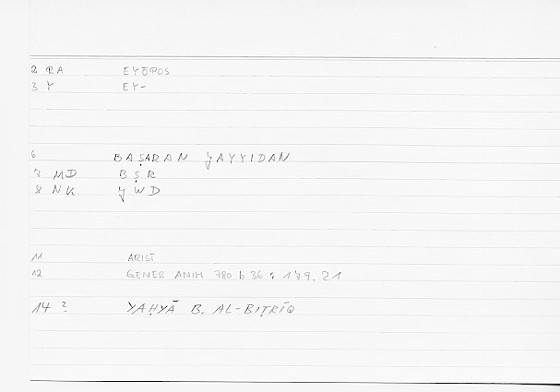 2 RA EYŌPOS
3 Y EY-
6 BAṢARAN ǦAYYIDAN
7 MD BṢR
8 NK ǦWD
11 ARIST
12 GENER ANIM 780 b 36 : 179.21
14 ? YAḤYĀ B. AL-BIṬRĪQ